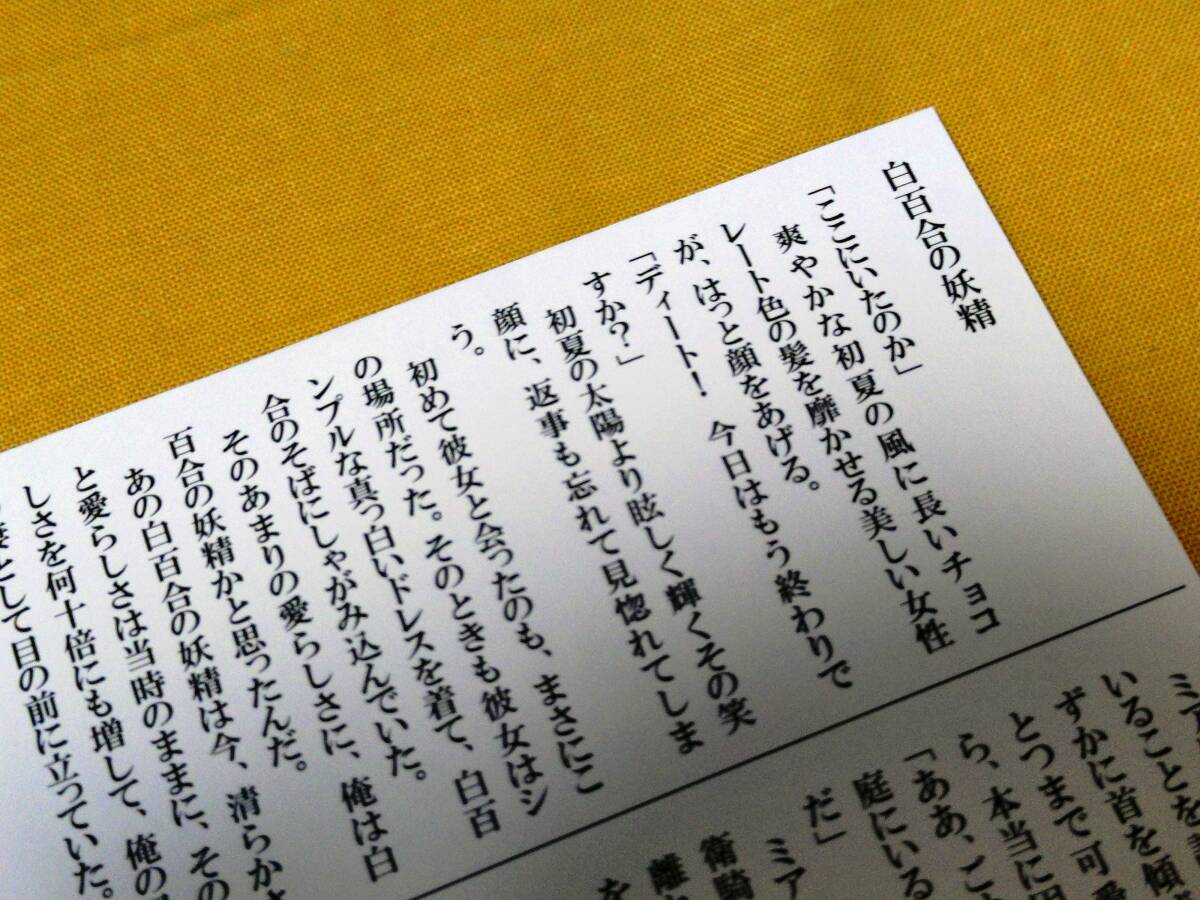 白百合の妖精
「ここにいたのか」
爽やかな初夏の風に長いチョコ
レート色の髪を靡かせる美しい女性
が、はっと顔をあげる。
「ディート！　今日はもう終わりで
すか？」
初夏の太陽より眩しく輝くその笑
顔に、返事も忘れて見惚れてしま
う。
初めて彼女と会ったのも、まさにこ
の場所だった。そのときも彼女はシ
ンプルな真っ白いドレスを着て、白百
合のそばにしゃがみ込んでいた。
そのあまりの愛らしさに、俺は白
百合の妖精かと思ったんだ。
あの白百合の妖精は今、清らかさ
と愛らしさは当時のままに、その
しさを何十倍にも増して、俺の
として目の前に立っていた。
ミア
いることを
ずかに首を傾
とつまで可愛
ら、本当に
「ああ、こ
庭にいる
だ」
ミア
衛騎
離
を